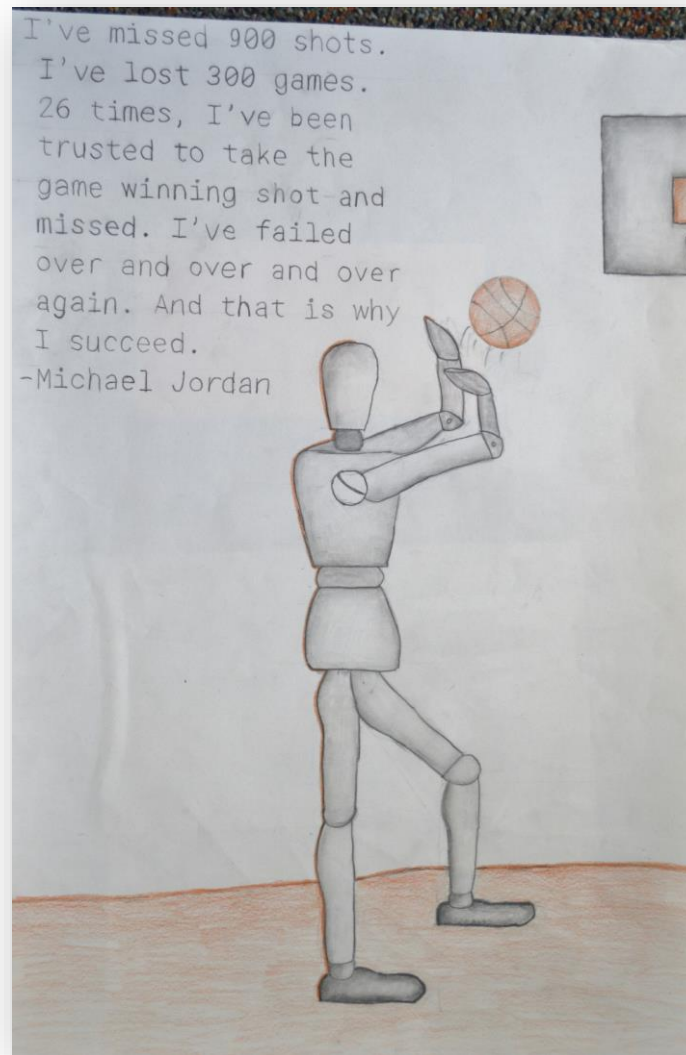 I've missed 900 shots.
I've lost 300 games.
26 times, I've been
trusted to take the
game winning shot and
missed. I've failed
over and over and over
again. And that is why
I succeed.
-Michael Jordan